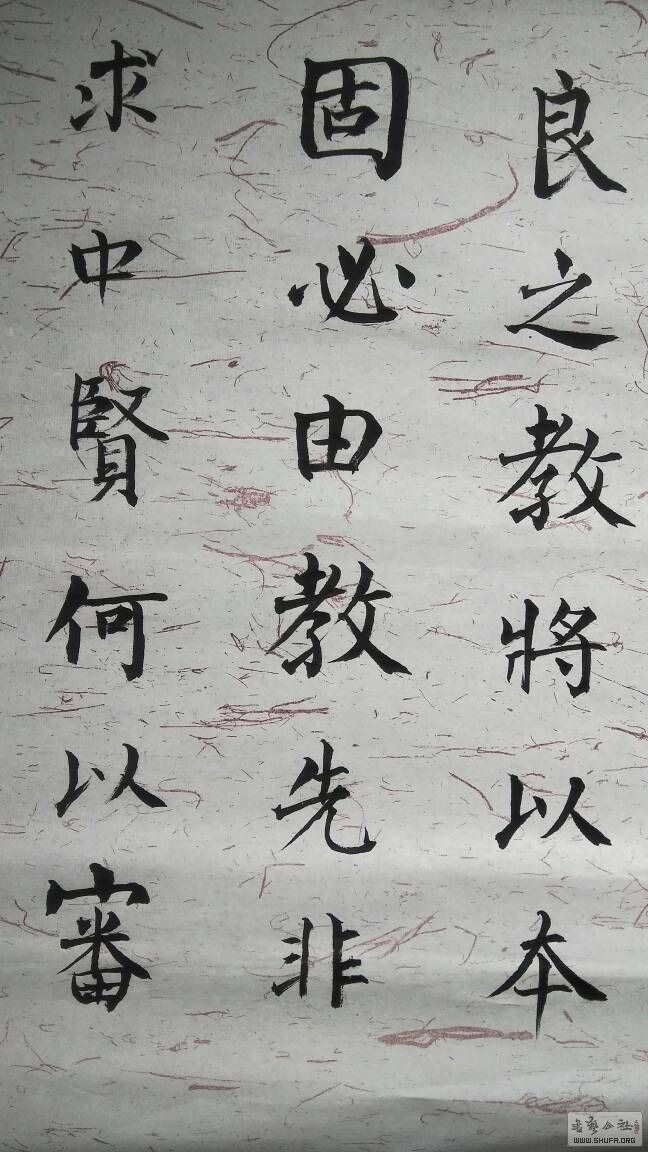 良之教將以本
固必由教先非
求中賢何以審
WWW.SHUFA.ORG